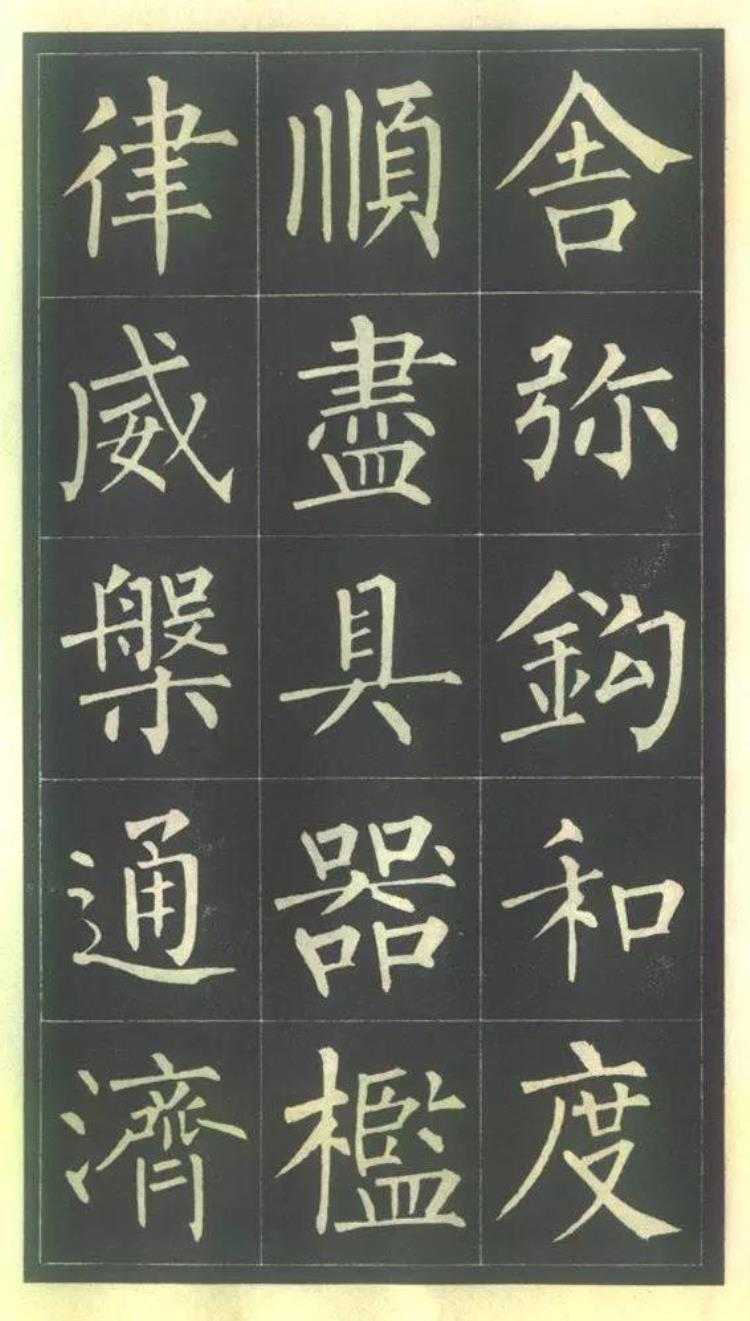 舍弥鈎和度
順盡具器檻
律威槃通濟